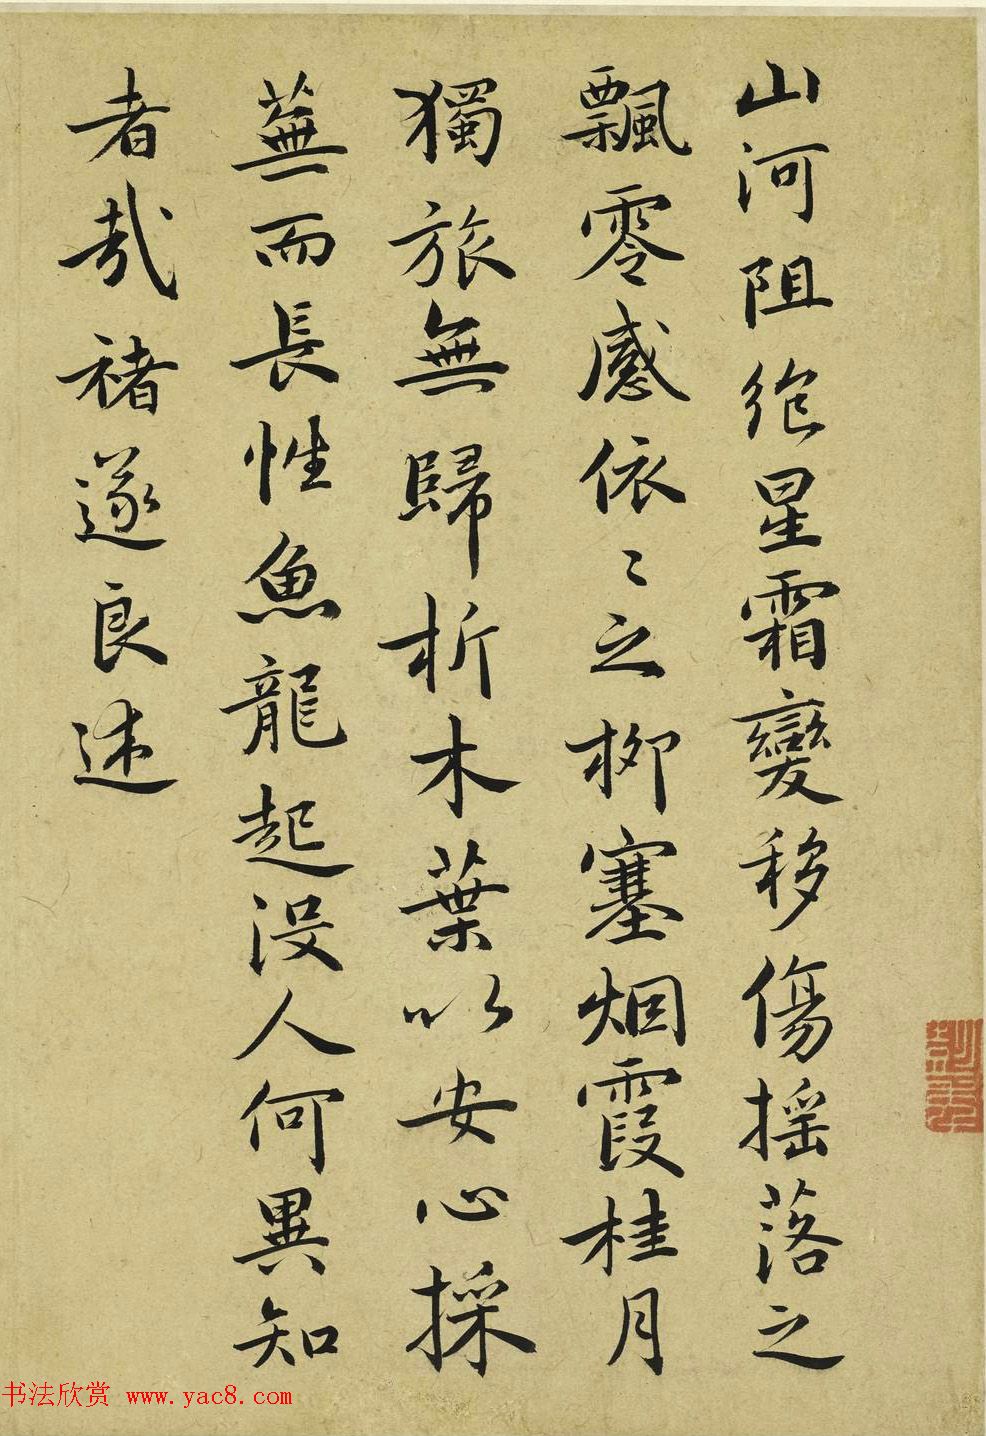 山河阻絶星霜變移傷摇落之
飄零感依〻之柳塞烟霞桂月
獨旅無歸析木葉以安心採
蕪而長性魚龍起没人何異知
者哉褚遂良述
书法欣赏 www.yac8.com